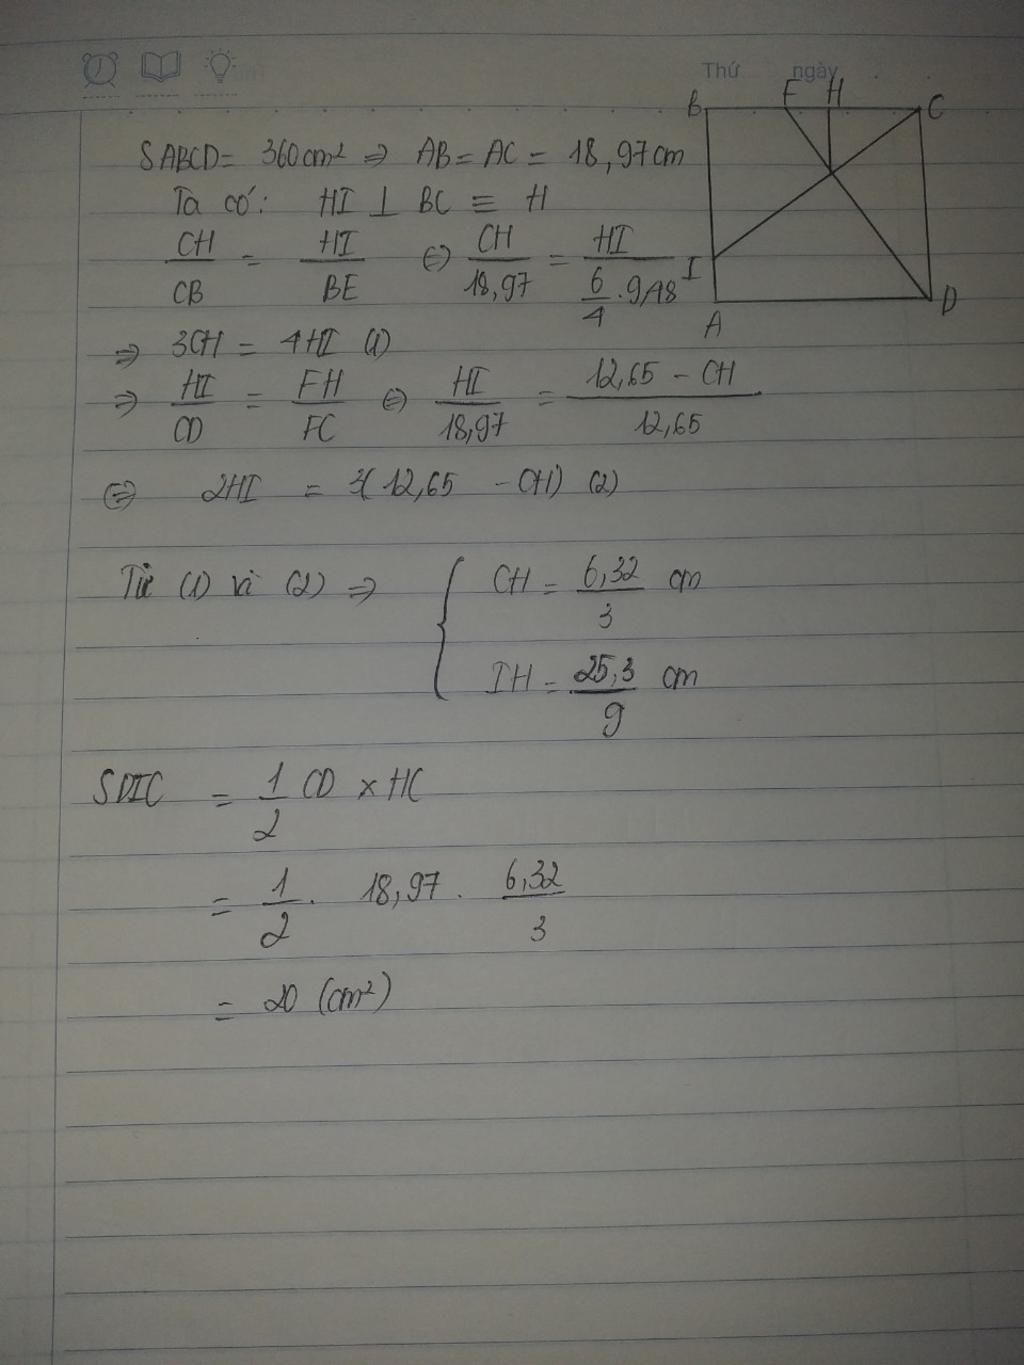 Thứ ngày
B F H C
SABCD = 360cm² ⇒ AB = AC = 18,97cm
Ta có: HI ⊥ BC ≡ H
CH/CB = HI/BE ⇔ CH/18,97 = HI/(6/4 . 9,48)
I
A D
⇒ 3CH = 4HI (1)
⇒ HI/CD = FH/FC ⇔ HI/18,97 = (12,65 - CH)/12,65
⇔ 2HI = 3(12,65 - CH) (2)
Từ (1) và (2) ⇒ { CH = 6,32/3 cm
IH = 25,3/9 cm
SDIC = 1/2 CD × HC
= 1/2 . 18,97 . 6,32/3
= 20 (cm²)